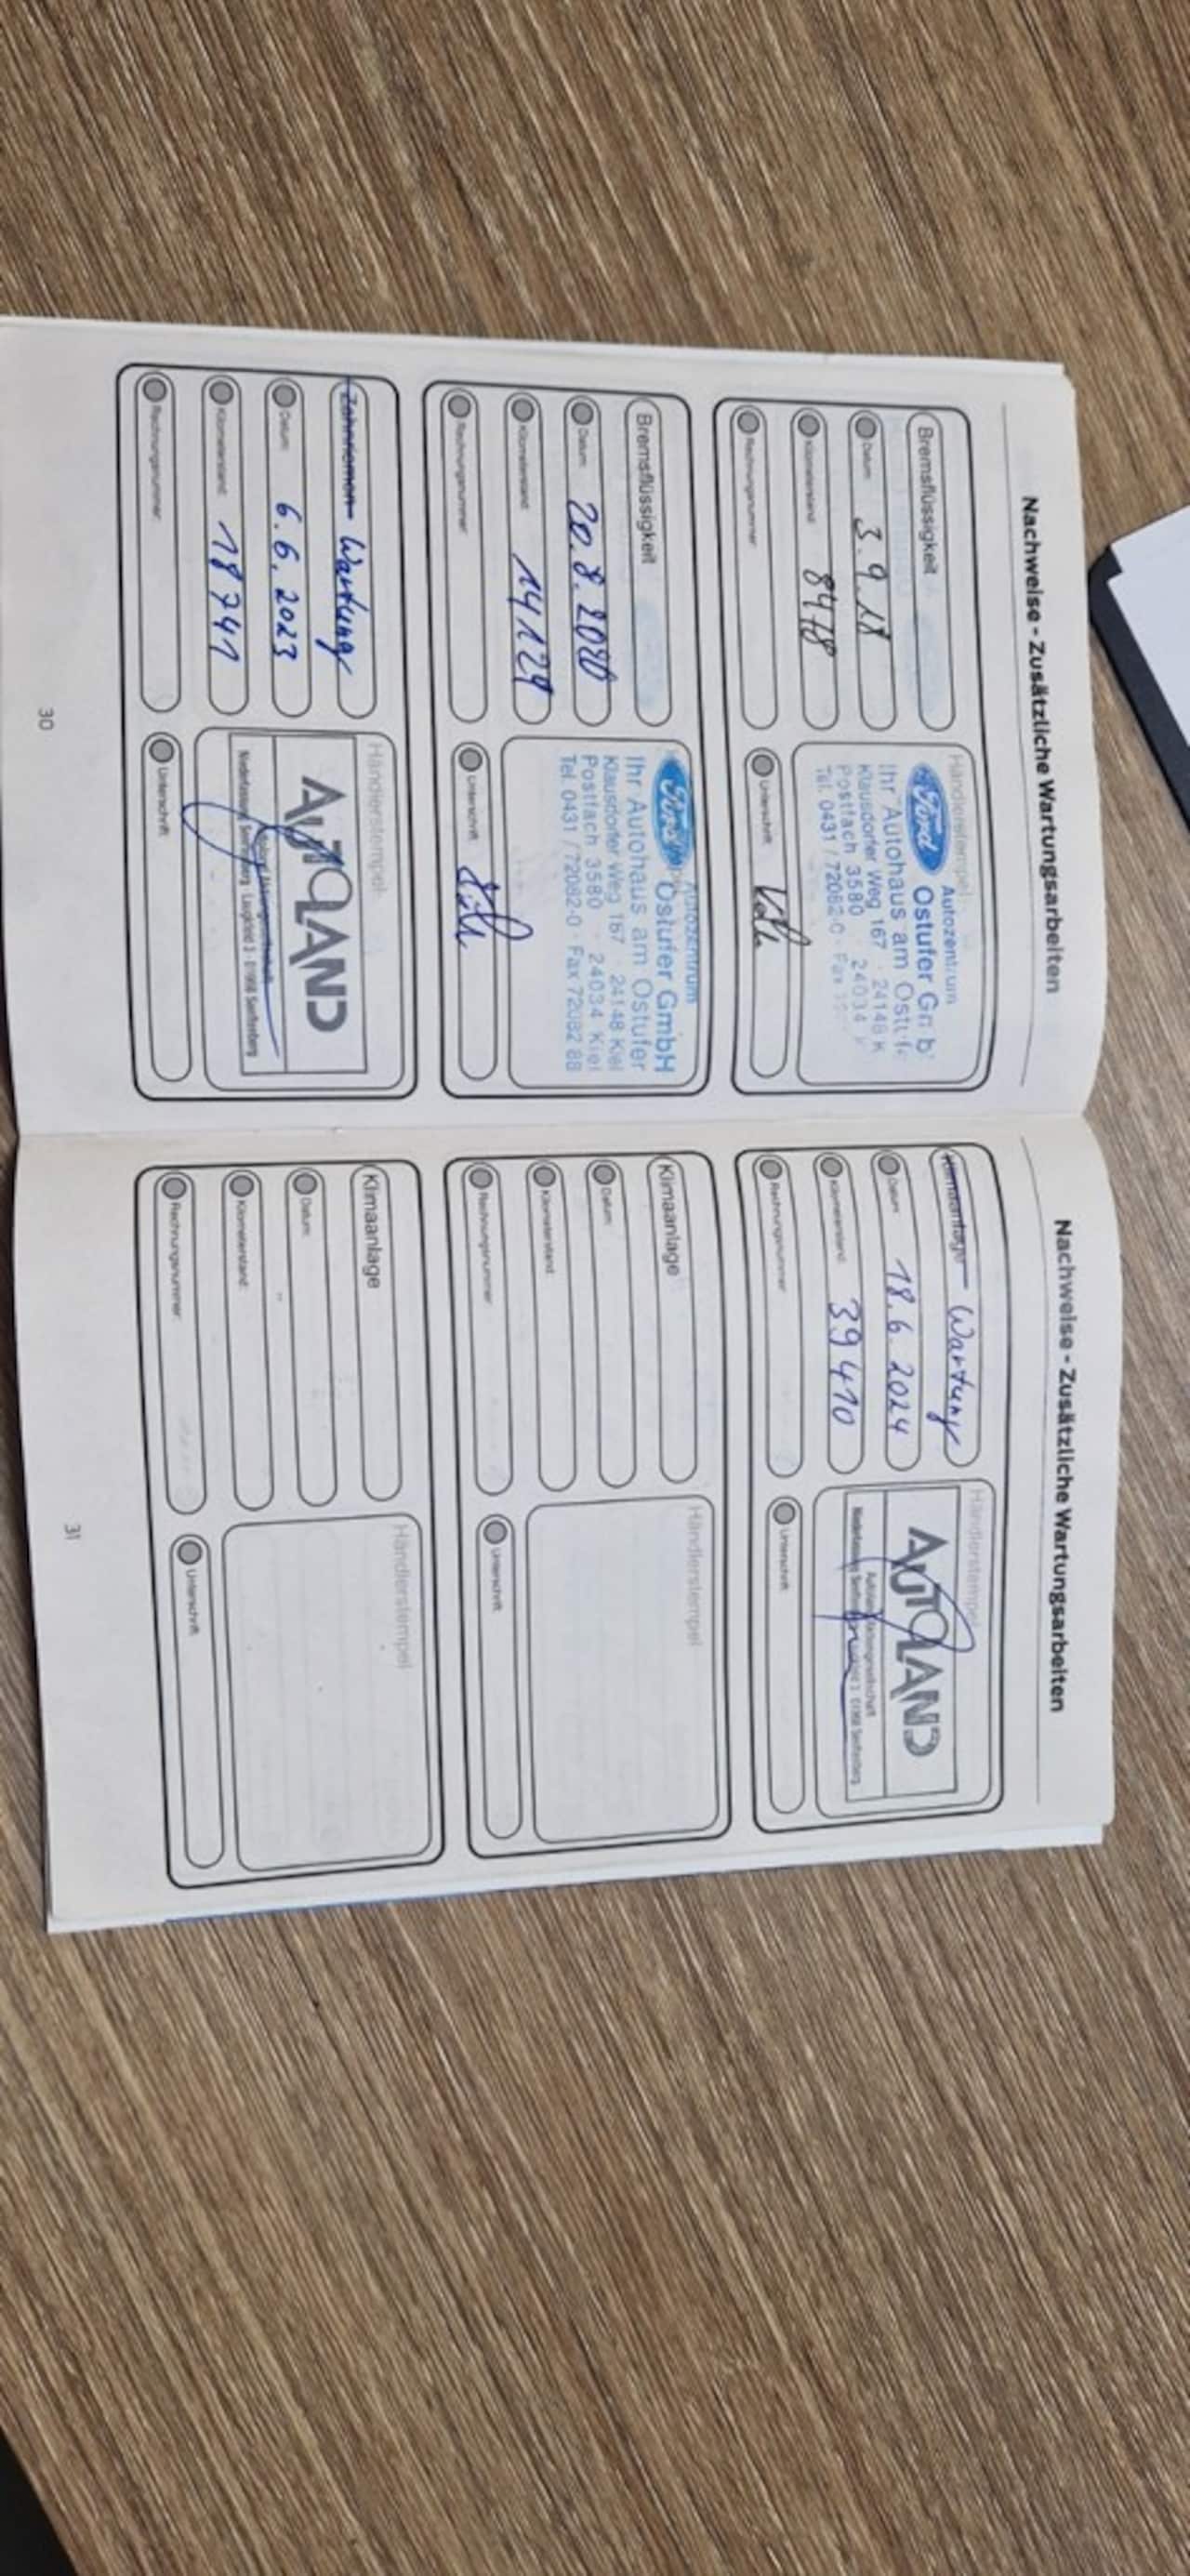 Nachweise - Zusätzliche Wartungsarbeiten
Bremsflüssigkeit
Datum: 3.9.18
Kilometerstand: 8478
Rechnungsnummer:
Händlerstempel
Ford
Autozentrum
Ostufer
Ihr Autohaus am
Klausdorfer Weg 167 · 24148 K
Postfach 3580 · 24034
Tel. 0431 / 72082-0 · Fax
Unterschrift:
Bremsflüssigkeit
Datum: 20.8.2020
Kilometerstand: 14129
Rechnungsnummer:
Ford
Autozentrum
Ostufer GmbH
Ihr Autohaus am Ostufer
Klausdorfer Weg 167 · 24148 Kiel
Postfach 3580 · 24034 Kiel
Tel. 0431 / 72082-0 · Fax 72082 88
Unterschrift:
Zahnriemen Wartung
Datum: 6.6.2023
Kilometerstand: 18741
Rechnungsnummer:
Händlerstempel
AUTOLAND
Niederlassung Senftenberg · 01968 Senftenberg
Unterschrift:
30
Nachweise - Zusätzliche Wartungsarbeiten
Klimaanlage Wartung
Datum: 18.6.2024
Kilometerstand: 39410
Rechnungsnummer:
Händlerstempel
AUTOLAND
Autoland Aktiengesellschaft
01968 Senftenberg
Unterschrift:
Klimaanlage
Datum:
Kilometerstand:
Rechnungsnummer:
Händlerstempel
Unterschrift:
Klimaanlage
Datum:
Kilometerstand:
Rechnungsnummer:
Händlerstempel
Unterschrift:
31